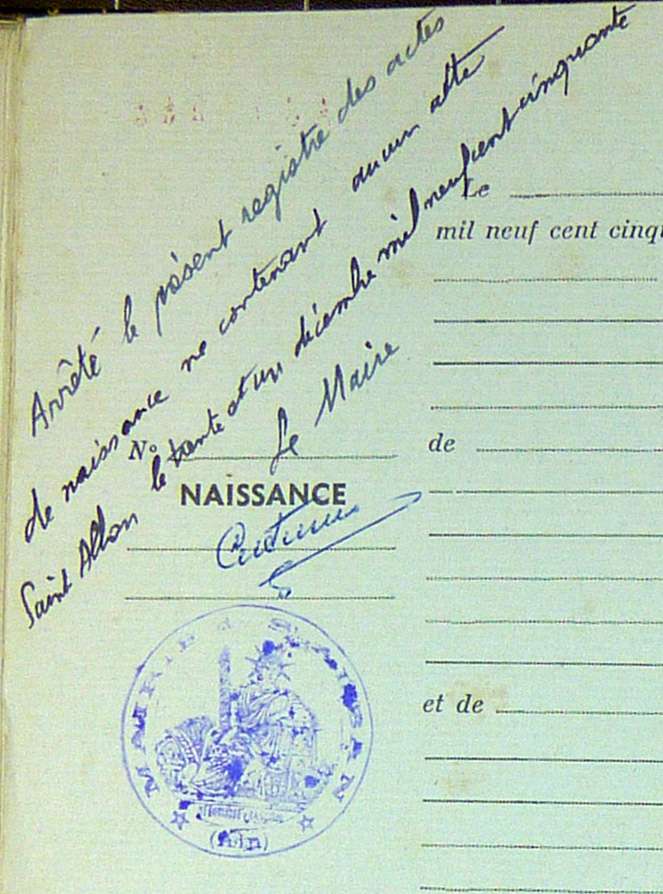 Arrêté le présent registre des actes
de naissance ne contenant aucun acte
Saint Alban le trente et un décembre mil neuf cent cinquante
Le Maire
Le
mil neuf cent cinq
de
N°
NAISSANCE
et de
MAIRIE ALBAN
REPUBLIQUE FRANÇAISE
(Ain)